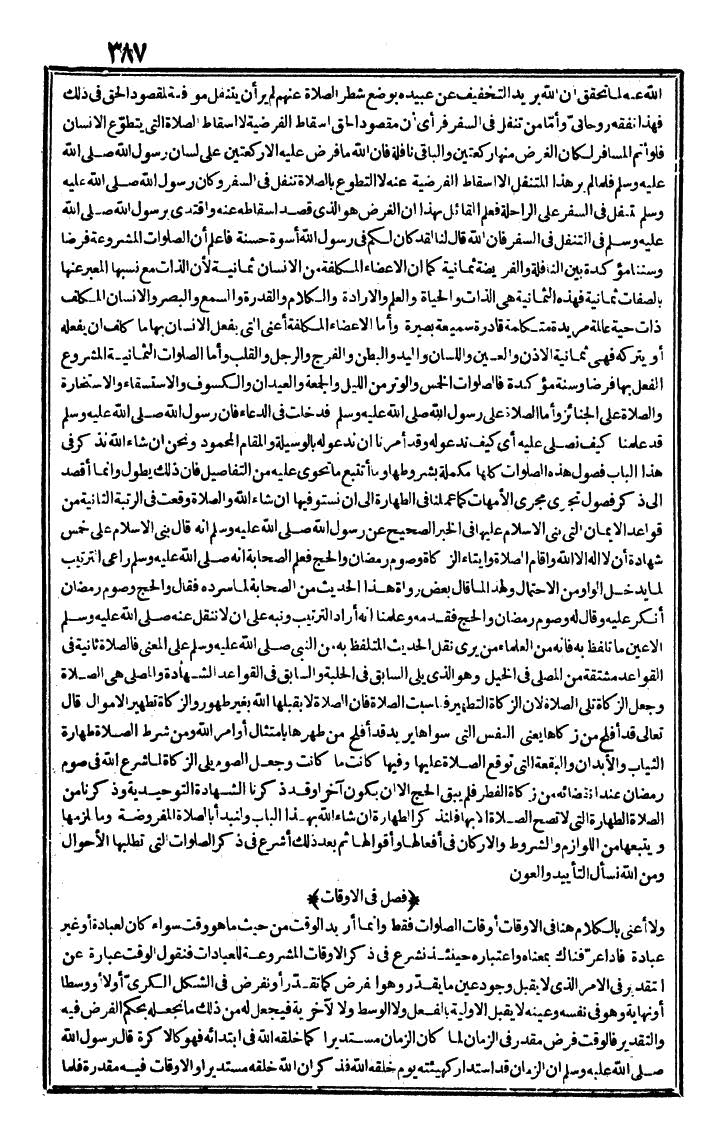 ٣٨٧
الله عنه لما تحقق ان الله يريد التخفيف عن عبيده بوضع شطر الصلاة عنهم لم ير أن يتنفل موافقة لمقصود الحق في ذلك
فهذا تفقه روحاني وأما من تنفل في السفر فرأى أن مقصود الحق اسقاط الفرضية لا اسقاط الصلاة التي يتطوع الانسان
فلو أتم المسافر لكان الفرض منها ركعتين والباقي نافلة فان الله ما فرض عليه الا ركعتين على لسان رسول الله صلى الله
عليه وسلم فلما لم ير هذا المتنفل الا اسقاط الفرضية عنه لا التطوع بالصلاة تنفل في السفر وكان رسول الله صلى الله عليه
وسلم يتنفل في السفر على الراحلة فعلم القائل بهذا ان الفرض هو الذي قصد اسقاطه عنه واقتدى برسول الله صلى الله
عليه وسلم في التنفل في السفر فان الله قال لنا لقد كان لكم في رسول الله أسوة حسنة فاعلم أن الصلوات المشروعة فرضا
وسنتا مؤكدة بين النافلة والفريضة ثمانية كما ان الاعضاء المكلفة من الانسان ثمانية لأن الذات مع نسبها المعبر عنها
بالصفات ثمانية فهذه الثمانية هي الذات والحياة والعلم والارادة والكلام والقدرة والسمع والبصر والانسان المكلف
ذات حية عالمة مريدة متكلمة قادرة سميعة بصيرة وأما الاعضاء المكلفة أعني التي يفعل الانسان بها ما كلف ان يفعله
أو يتركه فهي ثمانية الاذن والعين واللسان واليد والبطن والفرج والرجل والقلب وأما الصلوات الثمانية المشروع
الفعل بها فرضا وسنة مؤكدة فالصلوات الخمس والوتر من الليل والجمعة والعيدان والكسوف والاستسقاء والاستخارة
والصلاة على الجنائز وأما الصلاة على رسول الله صلى الله عليه وسلم فدخلت في الدعاء فان رسول الله صلى الله عليه وسلم
قد علمنا كيف نصلي عليه أي كيف ندعو له وقد أمرنا ان ندعو له بالوسيلة والمقام المحمود ونحن ان شاء الله نذكر في
هذا الباب فصول هذه الصلوات كلها مكملة بشروطها وما أتتبع ما تحوي عليه من التفاصيل فان ذلك يطول وانما أقصد
الى ذكر فصول تجري مجرى الأمهات كما عملنا في الطهارة الى ان نستوفيها ان شاء الله والصلاة وقعت في الرتبة الثانية من
قواعد الايمان التي بنى الاسلام عليها في الخبر الصحيح عن رسول الله صلى الله عليه وسلم انه قال بنى الاسلام على خمس
شهادة أن لا اله الا الله واقام الصلاة وايتاء الزكاة وصوم رمضان والحج فعلم الصحابة انه صلى الله عليه وسلم راعى الترتيب
لما يدخل الواو من الاحتمال ولهذا لما قال بعض رواة هذا الحديث من الصحابة لما سرده فقال والحج وصوم رمضان
أنكر عليه وقال له وصوم رمضان والحج فقدمه وعلمنا انه أراد الترتيب ونبه على ان لا ننقل عنه صلى الله عليه وسلم
الا عين ما تلفظ به فانه من العلماء من يرى نقل الحديث المتلفظ به من النبي صلى الله عليه وسلم على المعنى فالصلاة ثانية في
القواعد مشتقة من المصلي في الخيل وهو الذي يلي السابق في الحلبة والسابق في القواعد الشهادة والمصلي هي الصلاة
وجعل الزكاة تلي الصلاة لان الزكاة التطهير فناسبت الصلاة فان الصلاة لا يقبلها الله بغير طهور والزكاة تطهير الاموال قال
تعالى قد أفلح من زكاها يعني النفس التي سواها يريد قد أفلح من طهرها بامتثال أوامر الله ومن شرط الصلاة طهارة
الثياب والأبدان والبقعة التي توقع الصلاة عليها وفيها كانت ما كانت وجعل الصوم يلي الزكاة لما شرع الله في صوم
رمضان عند انقضائه من زكاة الفطر فلم يبق الحج الا ان يكون آخرا وقد ذكرنا الشهادة التوحيدية وذكرنا من
الصلاة الطهارة التي لا تصح الصلاة الا بها فلنذكر الطهارة ان شاء الله بهذا الباب ولنبدأ بالصلاة المفروضة وما يلزمها
ويتبعها من اللوازم والشروط والاركان في أفعالها وأقوالها ثم بعد ذلك أشرع في ذكر الصلوات التي تطلبها الأحوال
ومن الله نسأل التأييد والعون
﴿فصل في الاوقات﴾
ولا أعني بالكلام هنا في الاوقات أوقات الصلوات فقط وانما أريد الوقت من حيث ما هو وقت سواء كان لعبادة أو غير
عبادة فاذا عرفناك بمعناه واعتباره حينئذ نشرع في ذكر الاوقات المشروعة للعبادات فنقول الوقت عبارة عن
التقدير في الامر الذي لا يقبل وجود عين ما يقدر وهو الفرض كما نقدر أو نفرض في الشكل الكري أولا أو وسطا
أو نهاية وهو في نفسه وعينه لا يقبل الاولية بالفعل ولا الوسط ولا الآخرية فيجعل له من ذلك ما نجعله بحكم الفرض فيه
والتقدير فالوقت فرض مقدر في الزمان لما كان الزمان مستديرا كما خلقه الله في ابتدائه فهو كالاكرة قال رسول الله
صلى الله عليه وسلم ان الزمان قد استدار كهيئته يوم خلقه الله فذكر ان الله خلقه مستديرا والاوقات فيه مقدرة فلما